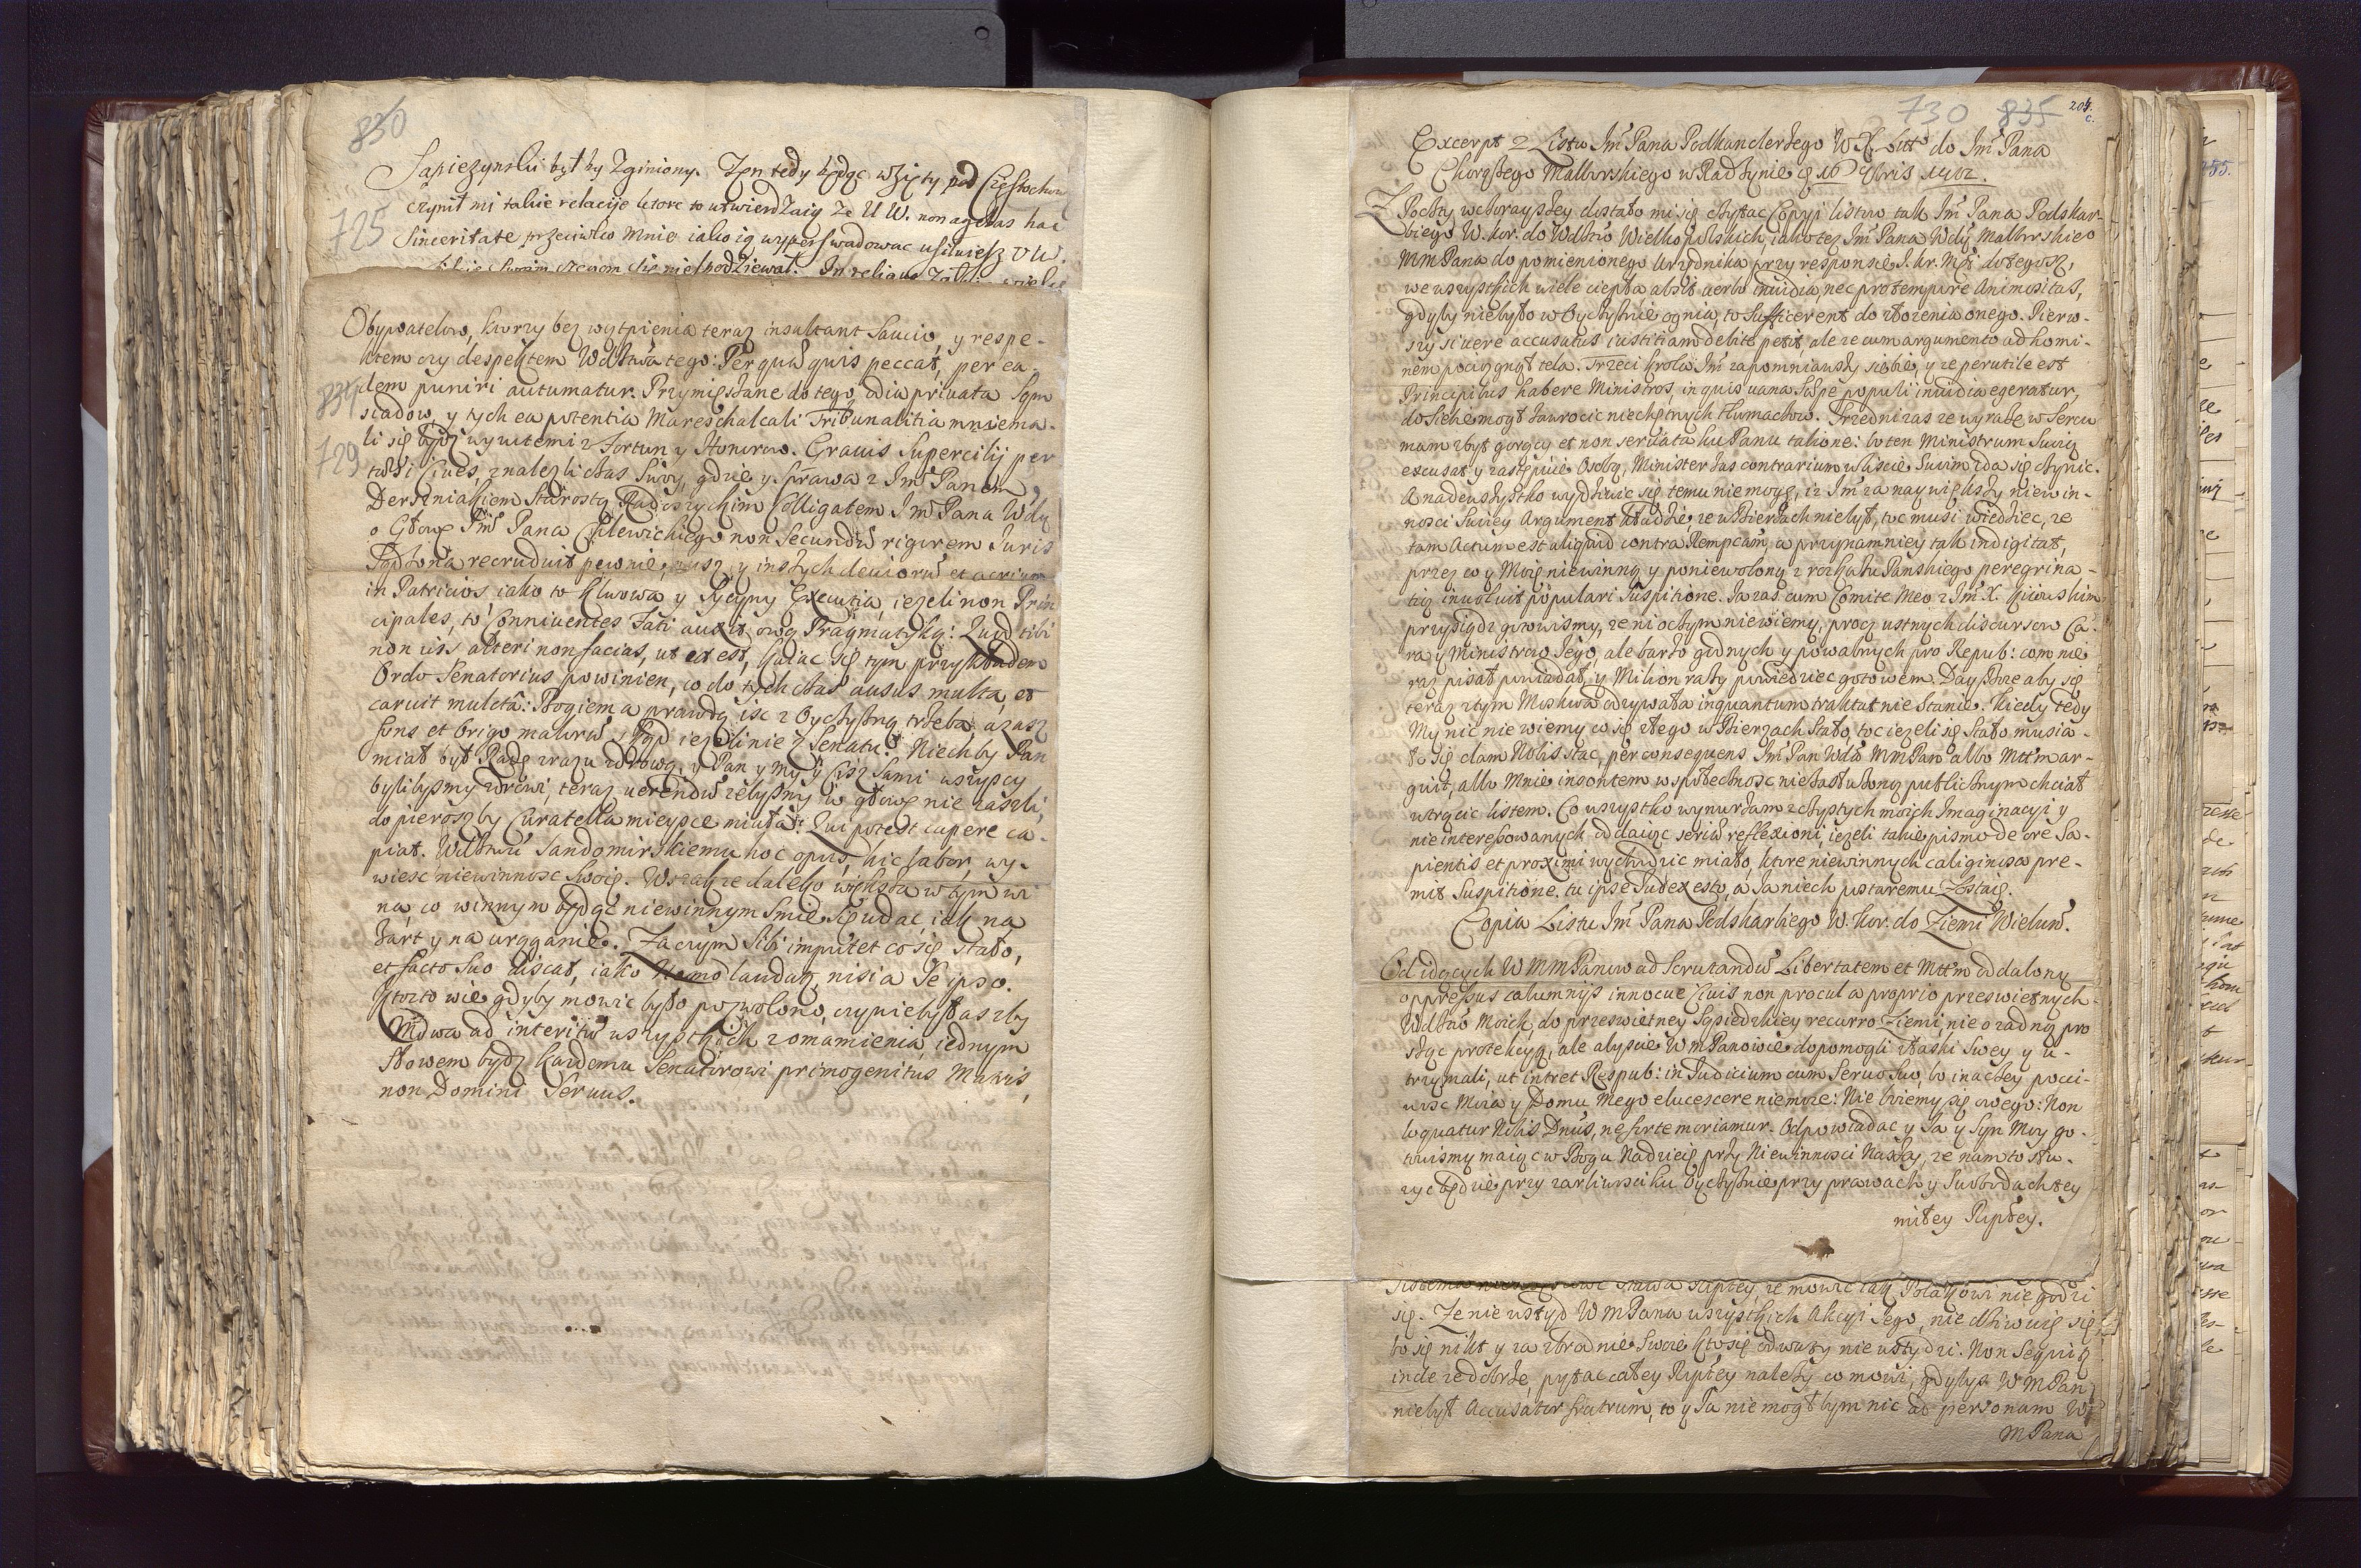 830
Sapiezynski był by Zginiony. Ten tedy będąc wzięty pod Częstochową
czynił mi takie relacije ktore to utwierdzaią Ze U W. non agebas hac
725
Sinceritate przeciwko Mnie iako ią wyperswadowac usiłuiesz
Obywatelow, ktorzy bez wątpienia teraz insultant Saucio, y respe-
ktem czy despektem Wdztwa tego: Per quod quis peccat, per ea-
831
dem puniri autumatur. Przymięszane do tego odia privata Sąm
siadow, y tych ea potentia Mareschalcali Tribunalitia mniema-
li się bydź wyzutemi z Fortun y Honorow. Gravis Supercilij per
729
Cives znalezli czas Swoy, gdzie y Sprawa z Jmć Panem
Derszniakiem Starostą Radoszyckim Colligatem Jmć Pana Wdy
o Głowę Jmć Pana Chlewickiego non Secundum rigorem Juris
Sądzona recruduit pewnie, y inszych et
in Patricios iako to Klwowa y Executia, iezeli non Prin
cipales, to Conniventes Fati auxit ową Pragmatyką: Quod tibi
non vis alteri non facias, ut est, kaiac się tym przykładem
Ordo Senatorius powinien, co do tych czas ausus multa, et
caruit mulctâ: Bogiem a prawdą isc z Oyczyzną trzeba, a zasz
fons et Origo malorum skąd iezeli nie z Senatu? Niech by Pan
miał był Radę zrazu zdrową, y Pan y My y Ciż Sami wszyscy
bylibysmy zdrowi, teraz verendum zebysmy w głowę nie zaszli,
dopierosz by Curatella mieysce miała: Qui potest capere ca-
piat. Wdztwu Sandomirskiemu hoc opus, hic labor, wy-
wiesc niewinnosc Swoię. Wszak ze daleko większa w tym wi
na, co winnym będąc niewinnym Smie się udac, iak na
zart y na urąganie. Zaczym Sibi imputet co się stało,
et facto Suo discat, iako Nemo laudatur, nisi a Se ipso.
Ktoz to wie gdyby mowic było pozwolono, czy nie była szby
Mowa ad interitum wszystkich zomamienia, iednym
słowem bydz kazdemu Senatorowi primogenitus
non Domini Servus.
730 835 204.
c.
Excerpt z Listu Jmć Pana Podkanclerzego W X Litt do Jmć Pana
Chorążego Malborskiego w Radzynie d. 16 1702.
Z Poczty wczorayszey dostało mi się czytac Copyi listow tak Jmć Pana Podskar-
biego W. Kor. do Wdztw Wielkopolskich iako tez Jmć Pana Wdy Malborskiego
MM Pana do pomienionego Urzędnika przy responsie J. Kr. Mci do tegosz,
we wszystkich wiele ciepła absit verbo invidia, nec pro tempore Animositas,
gdyby niebyło w Oyczyznie ognia, to Sufficerent do złozenia onego. Pierw-
szy si vere accusatus iustitiam debite petit, ale ze cum argumento ad homi-
nem pociągnął tela. Trzeci Krola Jmć zapomniawszy siebie, y ze perutile est
Principibus habere Ministros, in quos vana Saepe populi invidia egeratur,
do Siebie mogł zawrocic niechętnych tłumaczow. Srzedni zas ze wyraze w Sercu
mam zbyt gorący et non servata ku Panu talione: bo ten Ministrum Swoią
excusat y zastępuie Osobą, Minister zas contrarium w liscie Swoim zda się czynic.
A nadewszystko wydziwic się temu nie mogę, iz Jmć za naywiększy niewin-
nosci Swoiey Argument kładzie, ze w Bierzach niebył, toc musi wiedziec, ze
tam Actum est aliquid contra Rempcam, a przynamniey tak indigitat,
przez co y Moię niewinną y poniewolną z rozkazu Panskiego peregrina-
tią involuit populari Suspitione. Ja zas cum Comite Meo z Jmć X. Kiiowskim
przysiądz gotowismy, ze ni oczym niewiemy, procz ustnych discursow Ca-
ra y Ministrow Jego, ale barzo godnych y powabnych pro Repub: com nie
raz pisał powiadał, y Milion razy powiedziec gotowem. Day Boze aby się
teraz ztym Moskwa odzywała inquantum traktat nie Stanie. Kiedy tedy
My nic nie wiemy co się złego w Bierzach Stało, toc iezeli się Stało musia-
ło się clam Nobis stac, per consequens Jmć Pan Wda MM Pan albo Mttm ar-
guit, albo Mnie insontem w społecznosc niezasłuzoną publicznym chciał
wtrącic listem. Co wszystko wynurzam z czystych moich Imaginacyi y
nie interessowanych oddaiąc seriae reflexioni, iezeli takie pismo de ore Sa-
pientis et proximi wychodzic miało, ktore niewinnych caliginosa pre-
mit Suspitione. tu ipse Judex esto, a Ja niech po staremu Zostaię.
Copia Listu Jmć Pana Podskarbiego W. Kor. do Ziemi Wielun.
Od idących W MM Panow ad Scrutandum Libertatem et Mttm oddalony
oppressus calumnijs innocue Civis non procul a proprio przeswietnych
Wdztw Moich, do przeswietney Sąsiedzkiey recurro Ziemi, nie o zadną pro
sząc protekcyą, ale abyscie W m Panowie dopomogli z łaski Swey y u-
trzymali, ut intret Respub: in Judicium cum Servo Suo, bo inaczey pocci-
wosc Moia y Domu Mego elucescere niemoze: Nie boiemy się owego: Non
loquatur Nobis Dnus, ne forte moriamur. Odpowiadac y Ja y Syn Moy go-
towismy maiąc w Bogu Nadzieię przy Niewinnosci Naszey, ze nam to słu-
zyc będzie przy zarliwosci ku Oyczyznie przy prawach y Swobodach tey
miłey Rzptey.
Rzptey, ze mowic tak Polakowi nie godzi
się. Ze nie wstyd W m Pana wszystkich Akcyi Jego, nie dziwuię się,
bo się nikt y za zbrodnie Swoie kto się odwazy nie wstydzi. Non Sequitur
inde ze dobrze, pytac całey Rzptey nalezy co mowi, gdybys W M Pan
niebył Accusator fratrum, to y Ja nie mogł bym nic ad personam W
M Pana